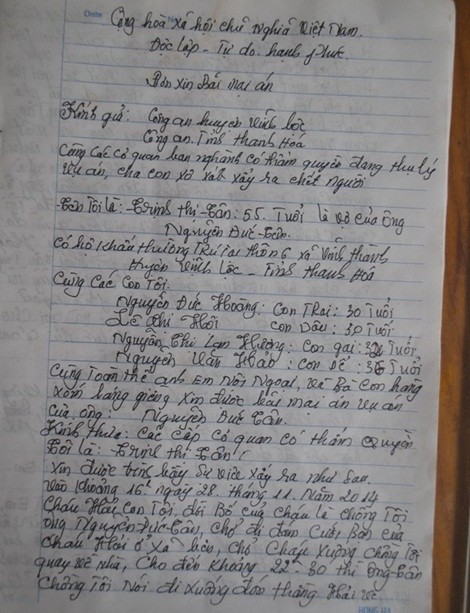 Cộng hoà xã hội chủ nghĩa Việt Nam.
Độc lập - Tự do. hạnh phúc.
Đơn xin Bãi mại án
Kính gửi: Công an huyện Vĩnh Lộc
Công an. Tỉnh thanh Hoá
Cùng Các cơ quan ban nghành có thẩm quyền đang thụ lý
vụ án, cha con xô xát xẩy ra chết người
Tên Tôi là: Trịnh thị Tân: 55. Tuổi là vợ của ông
Nguyễn Đức Tân.
Có hộ khẩu thường Trú tại thôn 6 xã Vĩnh thành
Huyện Vĩnh Lộc - Tỉnh thanh Hoá
Cùng Các Con Tôi.
Nguyễn Đức Hoàng: Con TRai: 30 Tuổi
Lê thị Hồi Con Dâu: 30 Tuổi
Nguyễn Thị Lan Hương: Con gái: Tuổi
Nguyễn Văn Hảo: Con Rể: Tuổi
Cùng Toàn thể anh Em Nội Ngoại, và Bà Con hàng
xóm láng giềng xin được bãi mại án vụ án
của ông: Nguyễn Đức Tân.
Kính thưa: Các cấp Cơ quan có thẩm Quyền
Tôi là: Trịnh thị Tân!
Xin được trình bầy Sự việc xẩy ra như Sau.
Vào Khoảng 16h ngày 28. tháng 11. Năm 2014
Cháu Hải Con Tôi, Bố của cháu là chồng Tôi
ông Nguyễn Đức Tân, Chở đi đám Cưới, Bạn của
Cháu Hải ở Xã bên, Chở Cháu Xuống chồng Tôi
quay về nhà, Cho đến khoảng 22h 30 thì ông Tân
Chồng Tôi Nói đi xuống đón thằng Hải về.
HONG HA